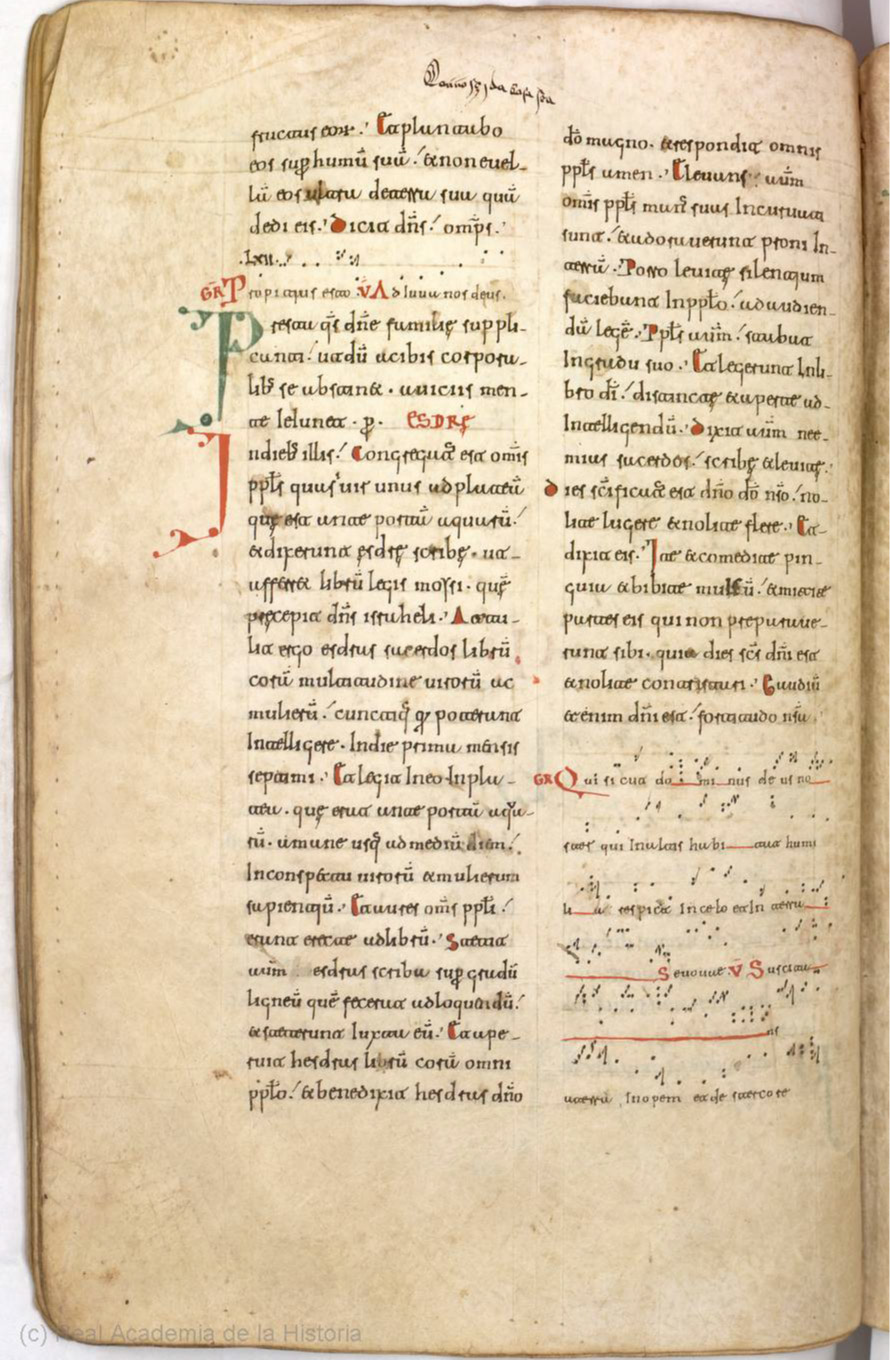 fructus eoꝝ. Et plantabo
eos sup humū suū. & non evel-
lā eos ultra de terra sua quā
dedi eis. dicit dn̄s. omp̄s.
.LXII.
GR Propitius esto. V Adiuva nos deus.
Presta qs̄ dn̄e familię suppli-
canti. ut dū a cibis corpora-
lib; se abstin&. a viciis men-
te Ieiunet. p. ESDRĘ
In dieb; illis. Congregatus est om̄is
ppl̄s quasi vir unus ad plateā
quę est ante portā aquarū.
& dixerunt esdrę scribę. ut
afferr& librū legis moysi. quę
pręcepit dn̄s israheli. Attu-
lit ergo esdras sacerdos librū
corā multitudine virorū ac
mulierū. cunctisq; q potera̅t
Intelligere. In die prima mensis
septimi. Et legit In eo In pla-
tea. quę erat ante portā aqua-
rū. a mane usq; ad mediū diem.
In conspectu virorū & mulierum
sapientiū. Et aures om̄is ppl̄i.
erant erecte ad librū. Stetit
autm̄ esdras scriba sup gradū
ligneū quē fecerat ad loquendū.
& steterunt Iuxta eū. Et ape-
ruit hesdras librū corā omni
ppl̄o. & benedixit hesdras dn̄o
dō magno. & respondit omnis
ppl̄s amen. Elevans autm̄
om̄is ppl̄s man᷒ suas Incurvati
sunt. & adoraverunt proni In
terrā. Porro levitę silentium
faciebant In pplō. ad audien-
dū legē. Ppl̄s autm̄. stabat
In gradu suo. Et legerunt In li-
bro dī. distincte & aperte ad
Intelligendū. dixit autm̄ nee-
mias sacerdos. scribę & levitę.
dies scīficatus est dn̄o dō nr̄o. no-
lite lugere & nolite flere. Et
dixit eis. Ite & comedite pin-
guia & bibite mulsū. & mittite
partes eis qui non prepara̅ve-
runt sibi. quia dies scs̄ dn̄i est
& nolite contristari. Gaudiū
etenim dn̄i est. fortitudo nr̄a
GR Qui sicut dominus deus no
ster qui In altis habitat humi
lia respicit In celo et In terra
Seuouae V Suscitans
a terra Inopem et de stercore